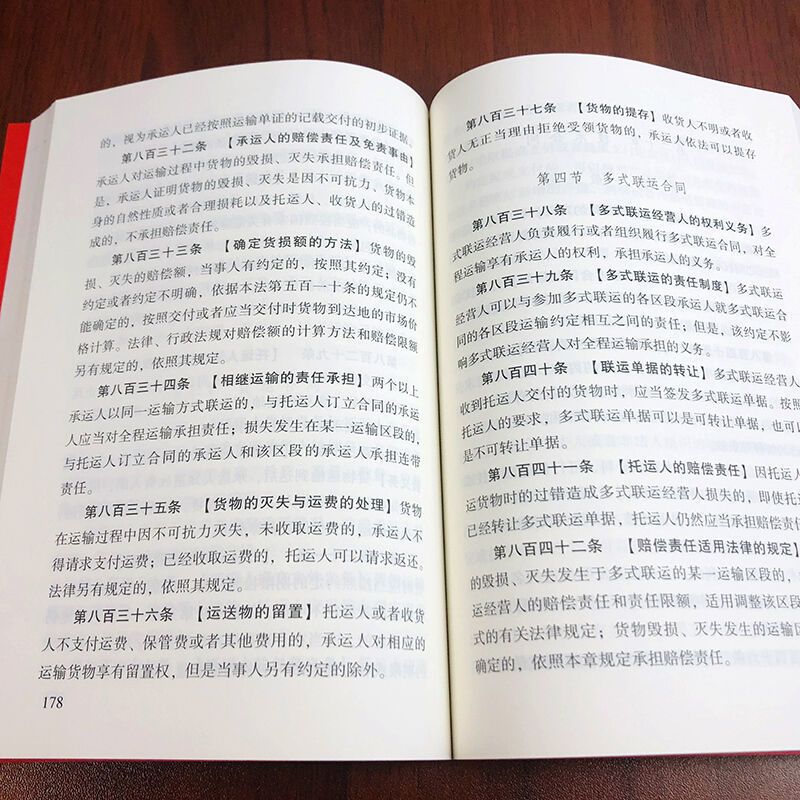 的，视为承运人已经按照运输单证的记载交付的初步证据。
第八百三十二条　【承运人的赔偿责任及免责事由】
承运人对运输过程中货物的毁损、灭失承担赔偿责任。但
是，承运人证明货物的毁损、灭失是因不可抗力、货物本
身的自然性质或者合理损耗以及托运人、收货人的过错造
成的，不承担赔偿责任。
第八百三十三条　【确定货损额的方法】货物的毁
损、灭失的赔偿额，当事人有约定的，按照其约定；没有
约定或者约定不明确，依据本法第五百一十条的规定仍不
能确定的，按照交付或者应当交付时货物到达地的市场价
格计算。法律、行政法规对赔偿额的计算方法和赔偿限额
另有规定的，依照其规定。
第八百三十四条　【相继运输的责任承担】两个以上
承运人以同一运输方式联运的，与托运人订立合同的承运
人应当对全程运输承担责任；损失发生在某一运输区段的，
与托运人订立合同的承运人和该区段的承运人承担连带
责任。
第八百三十五条　【货物的灭失与运费的处理】货物
在运输过程中因不可抗力灭失，未收取运费的，承运人不
得请求支付运费；已经收取运费的，托运人可以请求返还。
法律另有规定的，依照其规定。
第八百三十六条　【运送物的留置】托运人或者收货
人不支付运费、保管费或者其他费用的，承运人对相应的
运输货物享有留置权，但是当事人另有约定的除外。
178
第八百三十七条　【货物的提存】收货人不明或者收
货人无正当理由拒绝受领货物的，承运人依法可以提存
货物。
第四节　多式联运合同
第八百三十八条　【多式联运经营人的权利义务】多
式联运经营人负责履行或者组织履行多式联运合同，对全
程运输享有承运人的权利，承担承运人的义务。
第八百三十九条　【多式联运的责任制度】多式联运
经营人可以与参加多式联运的各区段承运人就多式联运合
同的各区段运输约定相互之间的责任；但是，该约定不影
响多式联运经营人对全程运输承担的义务。
第八百四十条　【联运单据的转让】多式联运经营人
收到托运人交付的货物时，应当签发多式联运单据。按照
托运人的要求，多式联运单据可以是可转让单据，也可以
是不可转让单据。
第八百四十一条　【托运人的赔偿责任】因托运人
运货物时的过错造成多式联运经营人损失的，即使托运
已经转让多式联运单据，托运人仍然应当承担赔偿责任
第八百四十二条　【赔偿责任适用法律的规定】
的毁损、灭失发生于多式联运的某一运输区段的，
运经营人的赔偿责任和责任限额，适用调整该区段
式的有关法律规定；货物毁损、灭失发生的运输区
确定的，依照本章规定承担赔偿责任。